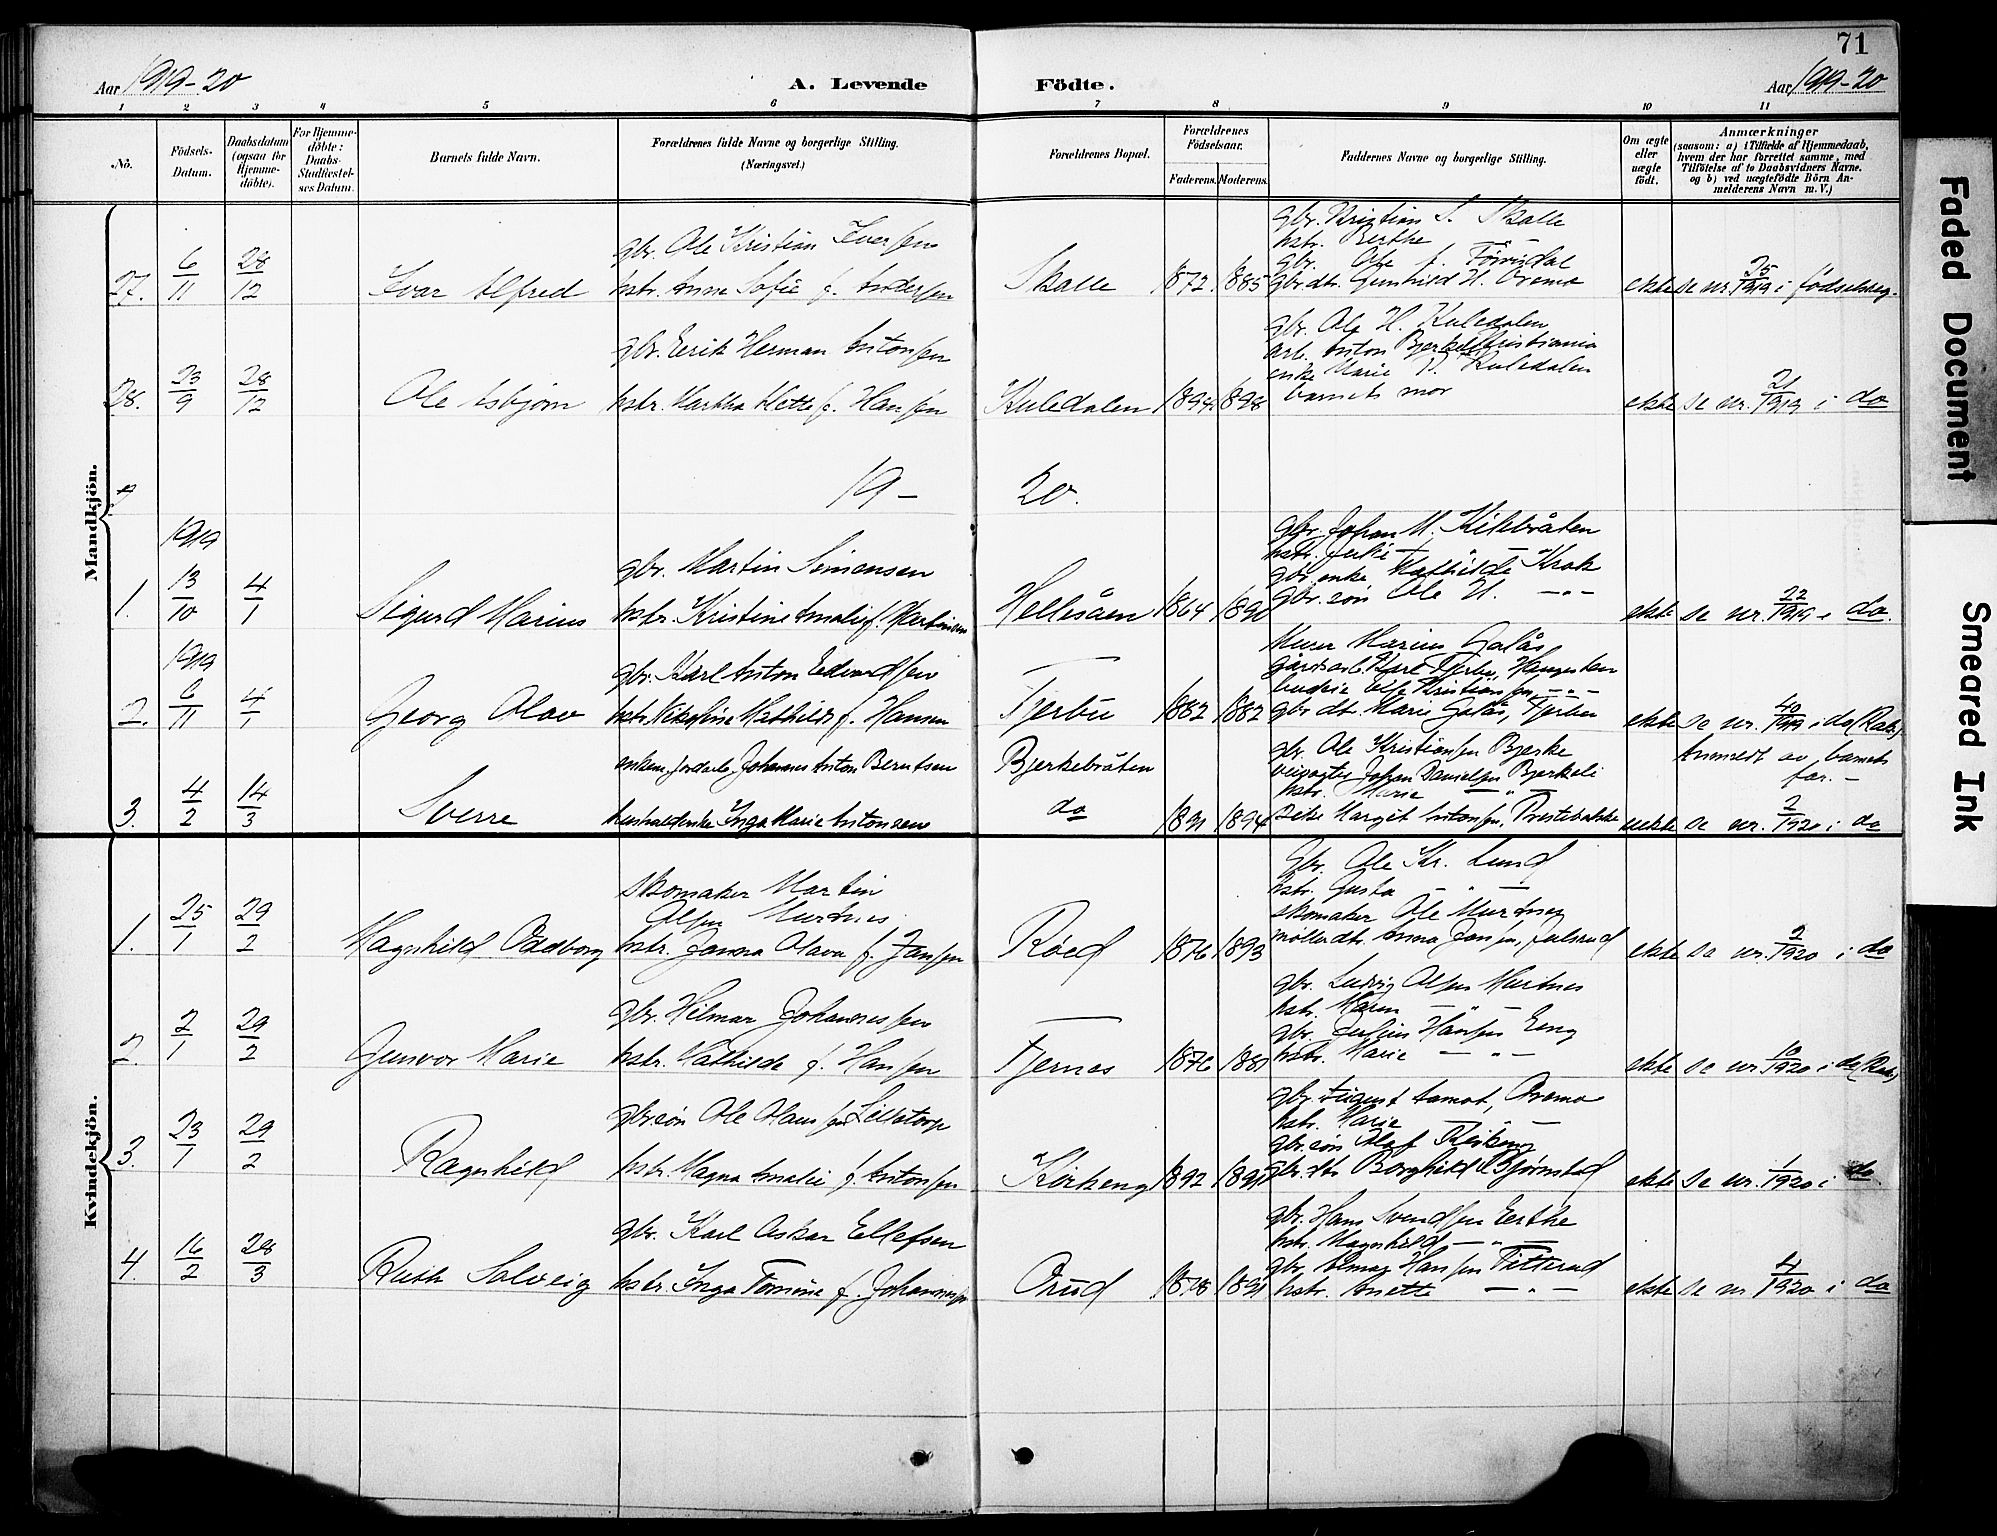 71
Aar 1919-20
A. Levende
Födte.
Aar 1919-20
1 2 3 4 5 6 7 8 9 10 11
Nô.
Födsels-Datum.
Daabsdatum (ogsaa for Hjemme-döbte).
For Hjemme-döbte: Daabs-Stadfæstel-ses Datum.
Barnets fulde Navn.
Forældrenes fulde Navne og borgerlige Stilling. (Næringsvei.)
Forældrenes Bopæl.
Forældrenes Födselsaar.
Faderens.
Moderens.
Faddernes Navne og borgerlige Stilling.
Om ægte eller uægte födt.
Anmærkninger (saasom: a) i Tilfælde af Hjemmedaab, hvem der har forrettet samme, med Tilföielse af to Daabsvidners Navne. og b) ved uægtefödte Börn An-melderens Navn m. V.)
Mandkjön.
27. 6/11 28/12 Ivar Alfred
gbr. Ole Kristian Iversen
hstr. Anna Sofie f. Andersen
Skalle 1872 1885
gbr. Kristian I. Skalle
hstr. Berthe
gbr. Ole
gbr.dtr. Gunhild H. Oremo
ekte se nr. 25/1919 i fødselsreg.
28. 23/9 28/12 Ole Asbjørn
gbr. Erik Herman Antonsen
hstr. Martha Mette f. Hansen
Kuledalen 1894 1898
gbr. Ole H. Kuledalen
arb. Anton Kristiania
enke Marie Kuledalen
barnets mor
ekte se nr. 21/1919 i do
19-20.
1. 1919 13/10 4/1 Sigurd Marius
gbr. Martin Simensen
hstr. Kristine Amalie f. Martinsen
Hellesåen 1864 1890
gbr. Johan M. Kihlebråten
hstr. Julie
gbr. enke Mathilde Krok
gbr. søn Ole H. —"—
ekte se nr. 22/1919 i do.
2. 1919 6/11 4/1 Georg Olav
gbr. Karl Anton Edvardsen
hstr. Nikoline Mathilde f. Hansen
Tjerbu 1882 1882
Marius Galås
gårdsarb. Karl Tjerbu,
budeie Kristiansen, —"—
gbr. dt. Marie Galås, Tjerbu
ekte se nr. 40/1919 i do
3. 4/2 14/3 Sverre
enkem. jordarb. Johannes Anton Berntsen
Inga Marie Antonsen
Bjerkebråten
do 1891 1894
gbr. Ole Kristiansen Bjerke
Johan Danielsen Bjerkeli
hstr. Marie —"—
pike Margit Antonsen, Prestebakke
uekte
Anmeldt av barnets far.-
se nr. 2/1920 i do
Kvindekjön.
1. 25/1 29/2 Magnhild Oddborg
skomaker Martin
Olsen Murtnes
hstr. Janna Olava f. Jansen
Röed 1876 1893
gbr. Ole Kr. Lund
hstr. Gusta —"—
skomaker Ole Murtnes
møllerdtr. Anna Jansen,
ekte se nr. 2/1920 i do
2. 2/1 29/2 Gunvor Marie
gbr. Hilmar Johannessen
hstr. Mathilde f. Hansen
Tjernes 1876 1881
gbr. Ludvig Olsen Murtnes
hstr. Maren —"—
gbr. Julius Hansen Eng
hstr. Marie —"—
ekte se nr. 10/1920 i do
3. 23/1 29/2 Ragnhild
gbr. søn Ole Olaus
hstr. Magna Amalie f. Antonsen
Kirkeng 1892 1891
gbr. August Aamot, Oremo
hstr. Marie —
gbr. søn Olaf Kirkeng
gbr. dtr. Borghild Bjørnstad
ekte se nr. 1/1920 i do
4. 16/2 28/3 Ruth Solveig
gbr. Karl Oskar Ellefsen
hstr. Inga Tomine f. Johannessen
Orud 1878 1891
gbr. Hans Svendsen Eerthe
hstr. Magnhild —"—
gbr. Hansen Titterud
hstr. Anette —"—
ekte se nr. 4/1920 i do
Faded Document
Smeared Ink